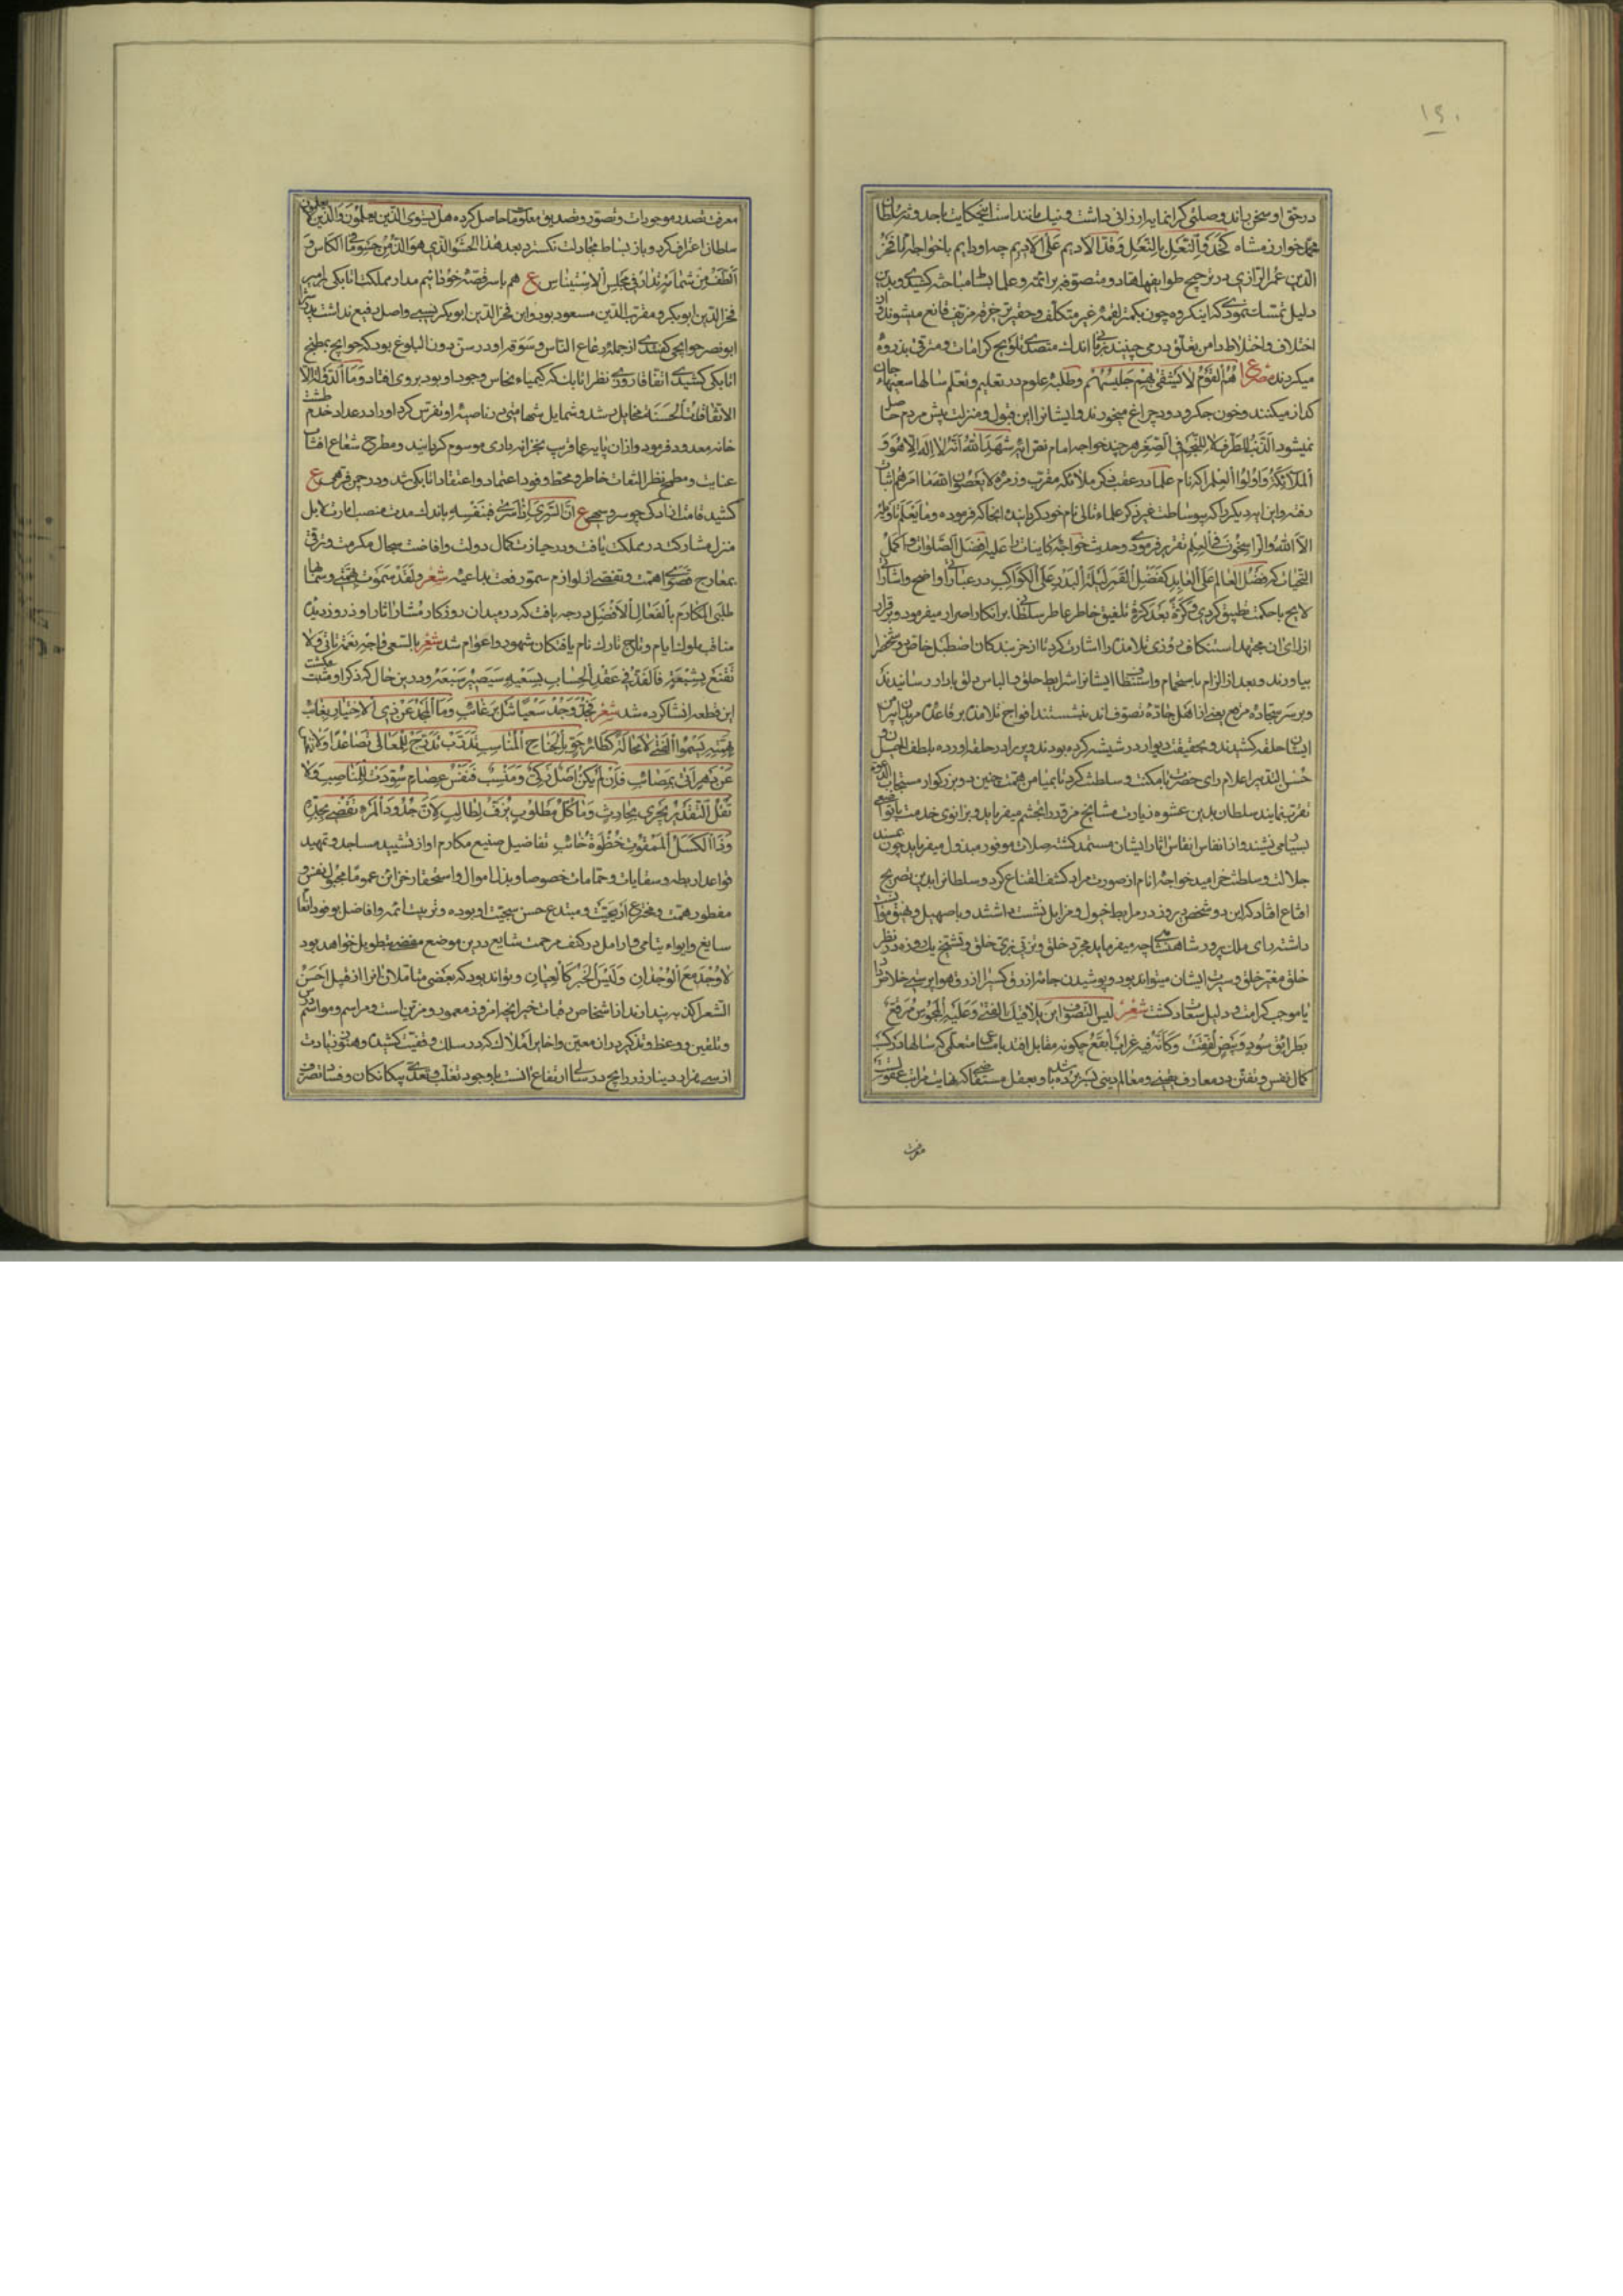 ۱۹۰
در حق او سخن باند و صلتی گرانمایه ارزانی داشت و نیک مانند است این حکایت باجد و نثر سلطان
محمد خوارزمشاه کحذو النعل بالنعل و قد الادیم علی الادیم چه او دایم با خواجه امام فخر
الدین عمر الرازی در ترجیح طوایف زهاد و متصوفه بر ائمه و علما بساط مباحثه کشیدی و بدین
دلیل تمسک نمودی که این گروه چون بکمتر لقمه غیر متکلف و حقیرتر خرقه مزیف قانع میشوند و از
اختلاف و اختلاط دامن تعلق در می چینند بزمانی اندک متصدی تلویح کرامات و مترقی بذروه
میکردند مصرع هم القوم لا یشقی بهم جلیسهم و طلبه علوم در تعلیم و تعلم سالها سعیهاء جان
گداز میکنند و خون جگر و دود چراغ میخورند و ایشانرا این قبول و منزلت پیش مردم حاصل
نمیشود الذنب للطرف لا للنجم فی الصغر هر چند خواجه امام نص آیه شهد الله انه لا اله الا هو و
الملائکة و اولوا العلم را که نام علما در عقب ذکر ملائکه مقرب و زمره لا یعصون الله ما امرهم ثبات
رفته و این آیه دیگر را که بی وساطت غیر ذکر علماء تالی نام خود گردانیده آنجا که فرموده و ما یعلم تاویله
الا الله و الراسخون فی العلم تقریر فرمودی و حدیث خواجه کاینات را علیه افضل الصلوات و اکمل
التحیات که فضل العالم علی العابد کفضل القمر لیلة البدر علی الکواکب در عباراتی واضح و اشاراتی
لایح با حکمت تطبیق کردی و کرة بعد کرة تلفیق خاطر عاطر سلطانی بر انکار اصرار میفرمود و برقرار
از رای آن مجتهد استنکاف روزی تلامذه را اشارت کرد تا از خربندگان اصطبل خاص دو شخص را
بیاورند و بعد از الزام باستحمام و استنظاف ایشانرا شرایط حلق با لباس دلق بادار رسانیدند
و بر سر سجاده مرتفع یعنی از اهل جاده تصوف اند بنشستند افواج تلامذه بر قاعده مریدان پیرامن
ایشان حلقه کشیدند و بحقیقت دیوار در شیشه کرده بودند و پیر را در حلقه آورده بلطف الحیل و
حسن التدبیر اعلام رای حضرت با مکنت و سلطنت کرد تا بمیامن همت چنین دو بزرگوار مستجاب الدعوة
تقرب نمایند سلطان بدین عشوه زیارت مشایخ مزور را تجشم میفرماید و بزانوی خدمت با تواضعی
بسیار می نشیند و از انفاس انفاس آثار ایشان مستمد گشته صلات موفور مبذول میفرماید چون مسند
جلالت و سلطنت خرامید خواجه امام از صورت مراد کشف القناع کرد و سلطانرا بدین تصریح
اقناع افتاد که این دو شخص دیروز در مرابط خیول و مزابل نشست داشتند و با صهیل و نهیق موقت
داشته رای ملک پرور شاهنشاهی چه میفرماید مجرد خلق و تزیی بزی خلق و تشیخ یک روزه در نظر
خلق مغیر خلق و سیرت ایشان میتواند بود و پوشیدن جامه ازرق کسی را از رق هوا بر سبیل خلاص داد
یا موجب کرامت و دلیل سعادت گشت شعر لیس التصوف ان یلاقیک الفتی و علیه المجوس مرقع
بطرایق سود و بیض لفقت و کانه فیه غراب ابقع چگونه مقابل افتد با متعلمی که سالها در کسب
کمال نفس و تفنن در معارف یقینی و معالم دینی بسر برده باشد و بعقل مستفاد که نهایت مراتب عقولست
معرفت
معرفت تصدر موجودات و تصور و تصدیق معلومات حاصل کرده هل یستوی الذین یعلمون و الذین لا یعلمون
سلطان اعتراف کرد و باز بساط مجادلت نگسترد بعد هذا الحشو الذی هو الذ من حشو ما الکاس و
الطف من شمایر تدار فی مجلس الاستیناس ع هم با سر قصه خود آئیم مدار مملکت اتابکی بر امیر
فخر الدین ابوبکر و مقرب الدین مسعود بود و این فخر الدین ابوبکر نسبی و اصلی رفیع نداشت پدرش
ابونصر حوایجی گفتندی از جمله رعاع الناس و سوقه او در سن دون البلوغ بود که حوایج بمطبخ
اتابکی کشیدی اتفاقا روزی نظر اتابک که کیمیاء نحاس وجود او بود بر وی افتاد و ما الدولة الا
الاتفاقات الحسنة مخایل رشد و شمایل شهامتی در ناصیه او تفرس کرد او را در عداد خدم طشت
خانه معدود فرمود و از آن پایه عما قریب بخزانه داری موسوم گردانید و مطرح شعاع آفتاب
عنایت و مطمح نظر التفات خاطر و محتط وفود اعتماد و اعتقاد اتابکی شد و در چمن ترقی ع
کشید قامت آزادگی چو سرو سهی ع ان السری اذا سری فبنفسه باندک مدت منصب امارت لا بل
منزل مشارکت در مملکت یافت و در حیازت کمال دولت و افاضت سجال مکرمت و ترقی
بمعارج قصوی همت و تفصی از لوازم سمو رفعت بداعیه شعر و لقد سموت بهمتی و سما بها
طلبی المکارم بالفعال الافضل درجه یافت که در میدان روزگار مشار آثار او در روز دیدن
مناقب ملوک ایام و تاج تارک نام یافتگان شهود و اعوام شد شعر بالسعی واجه نعمة تاتی ولا
تقنع بشبعة فالقدر فی عقد الحساب بسعیه سیصیر سبعة و درین حال که ذکر او مثبت میگشت
این قطعه انشا کرده شد شعر بجد وجد سعیا شل رغائب و ما المجد عن ذی الاختیار بغائب
بهمته یسموا الفتی لا محالة کطائر جو بالجناح المناسب تدرب تدرج للمعالی تصاعدا ولا تنها
عن دهر اتی بمصائب فان لم یکن اصل زکی و منسب فنفس عصام سودت للمناصب ولا
تقل التقدیر یجری بحادث و ما کل مطلوب یزف لطالب لان حدود المرء تقضی بجده
و ذا الکسل الممقوت خطوة خائب تفاضیل صنیع مکارم او از تشیید مساجد و تمهید
قواعد اربطه و سقایات و حمامات خصوصا و بذل اموال و استحقار خزاین عموما مجبول نفس و
مفطور همت و مخترع اریحیت و مبتدع حسن سجیت او بوده و تربیت ائمه و افاضل بوفود انعام
سایغ و ایواء یتامی و ارامل در کنف مرحمت شایع درین موضع مفضی بتطویل خواهد بود
لا وجد مع الوجدان و لیس الخبر کالعیان و تواند بود که بعضی متاملان آنرا از قبیل احسن
الشعر اکذبه پندارند اما شخاص رقبات خیر آنچه امروز معمود و مزین است و مراسم و مواسم درس
و تلقین و وعظ و تذکیر در آن معین و اخایر املاک که در سلک وقفیت کشیده و هنوز زیادت
از سی هزار دینار زر رایج در سالی ارتفاع آنست با وجود تغلب و تعدی بیگانگان و فساد تصرف